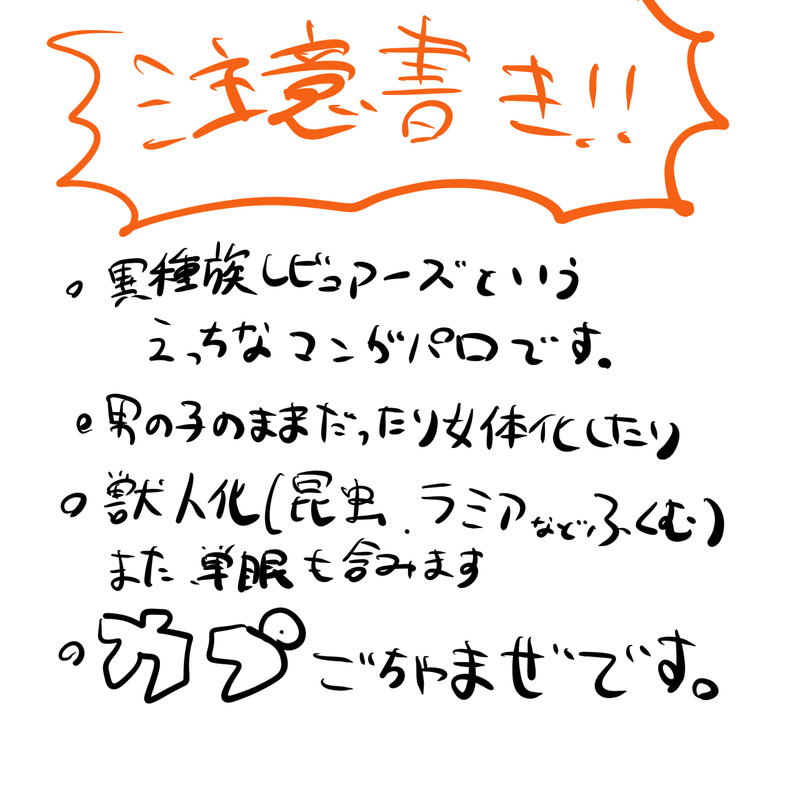 注意書き!!
。異種族レビュアーズという
えっちなマンガパロです。
。男の子のままだったり女体化したり
。獣人化(昆虫.ラミアなどふくむ)
また単眼も含みます
。カプごちゃまぜです。